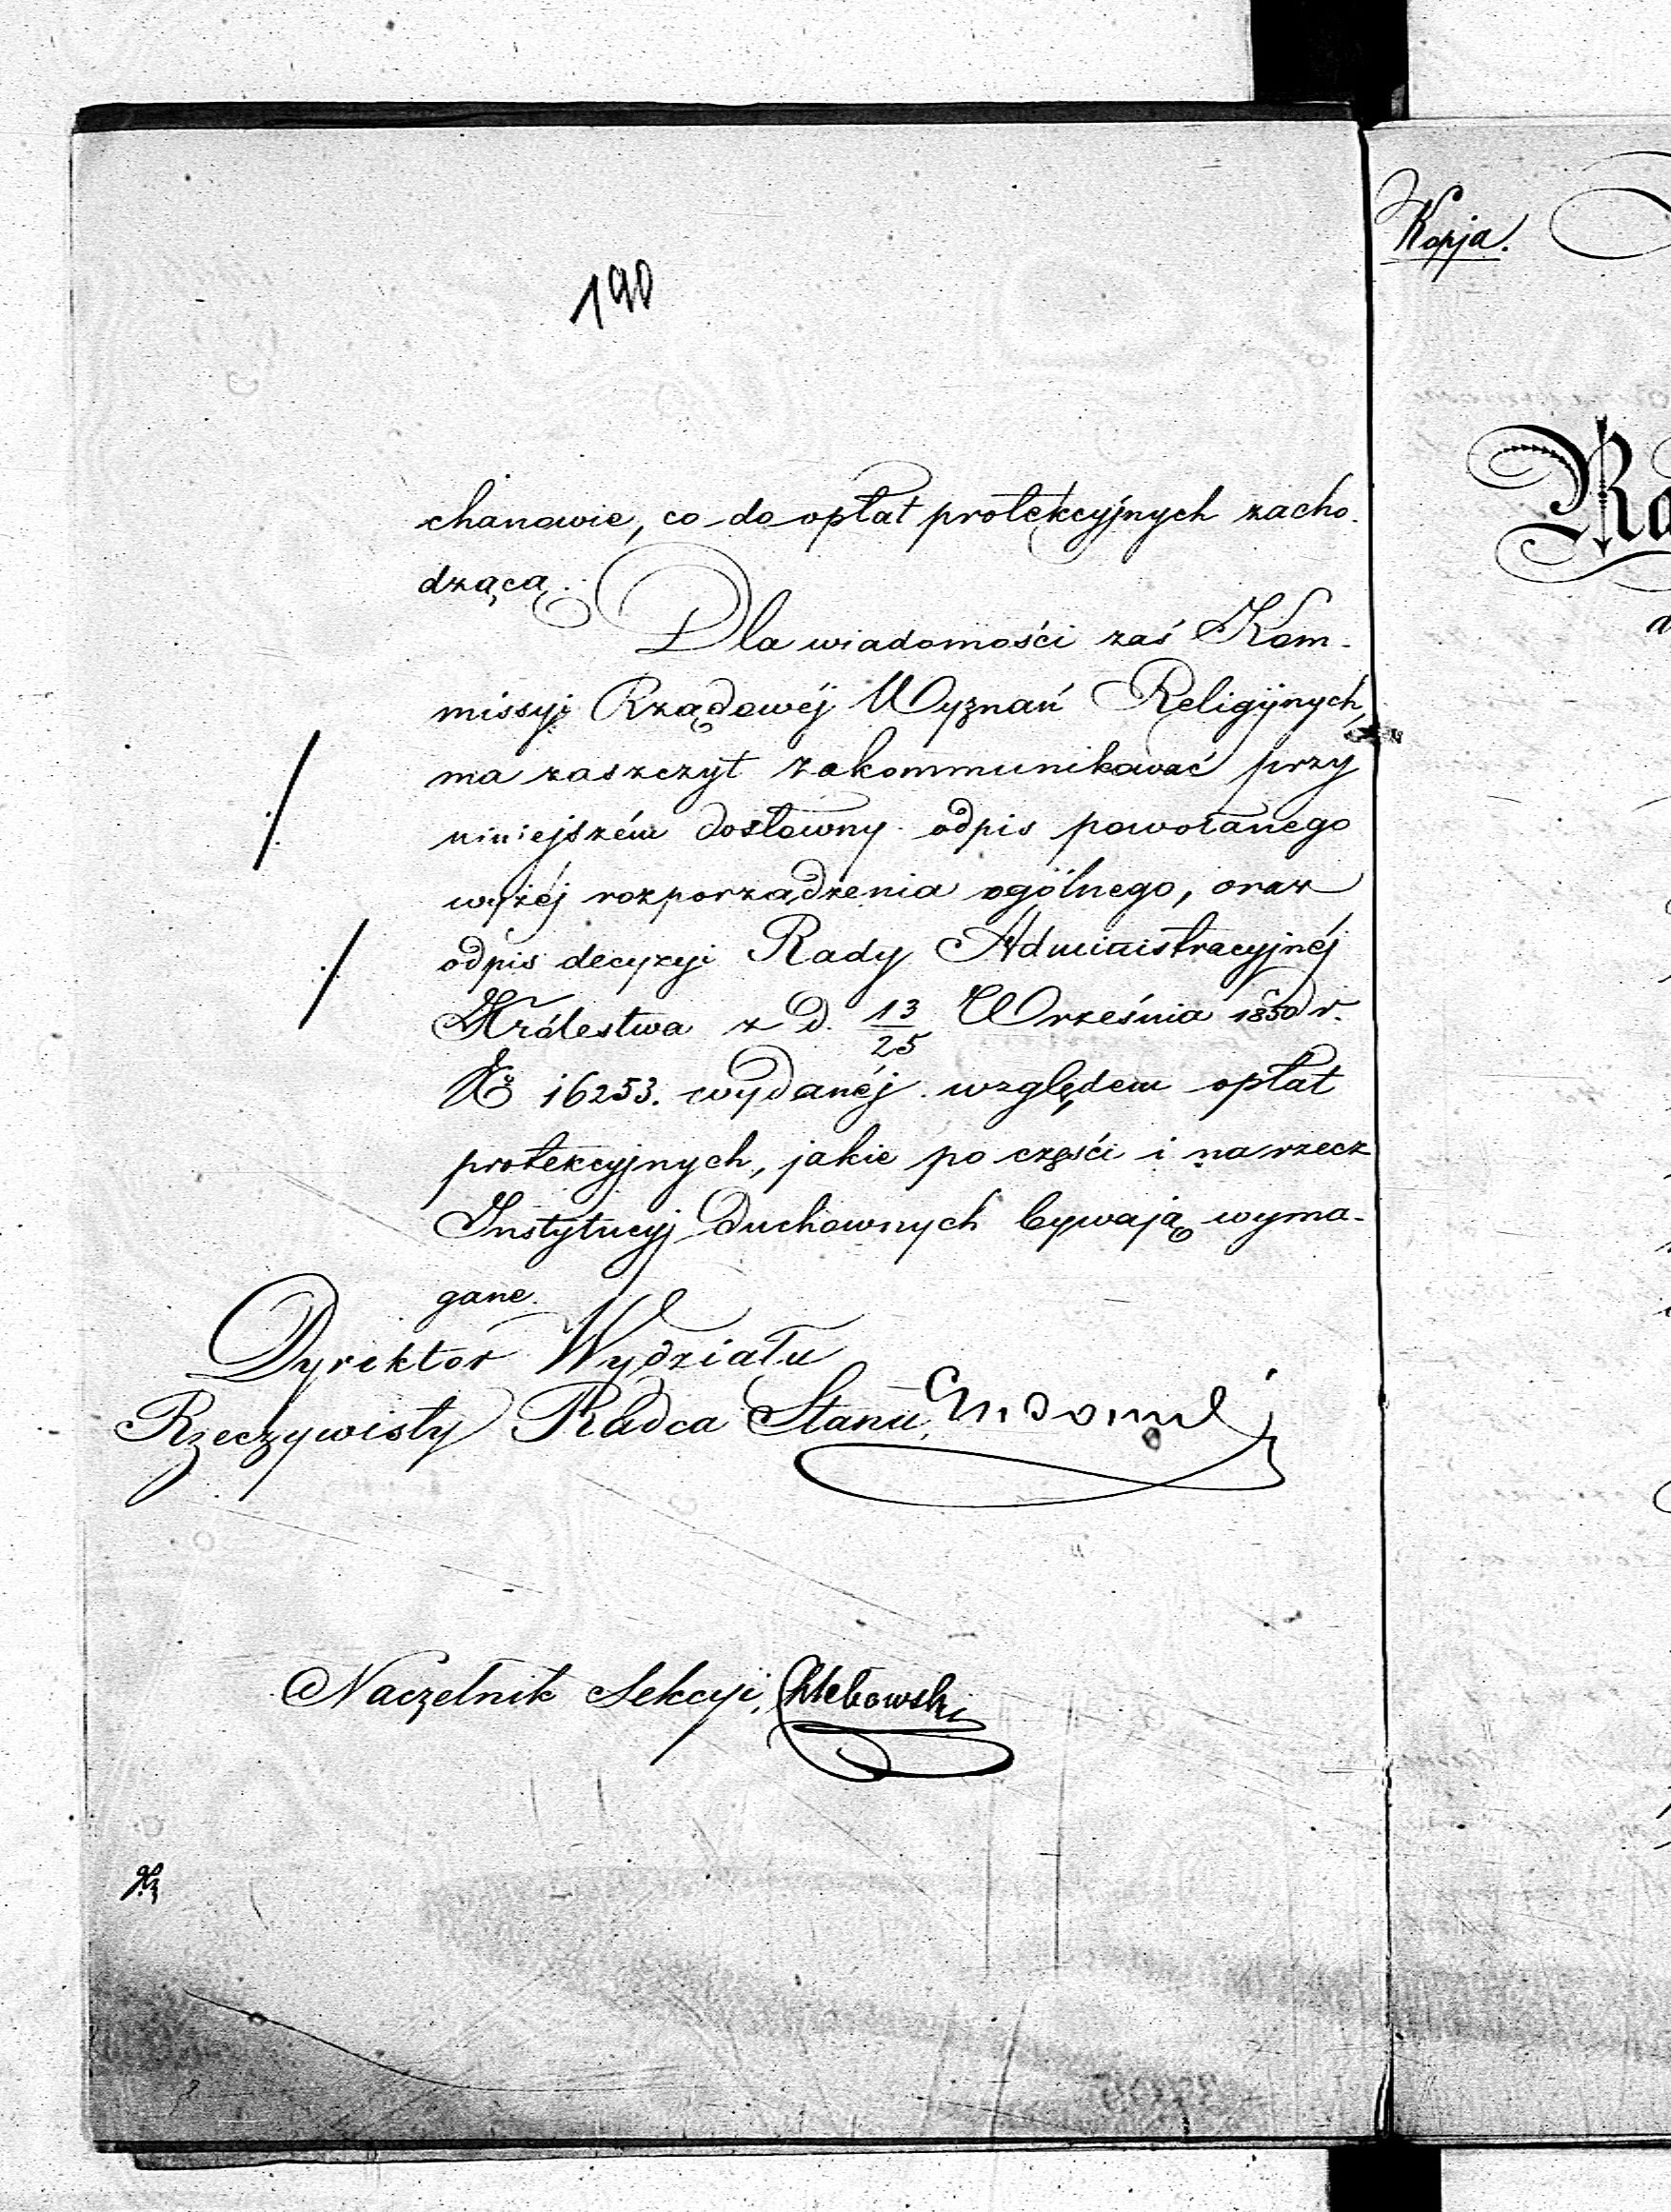 190
chanowie, co do opłat protekcyjnych zacho-
dzącą.
Dla wiadomości zaś Kom-
missyi Rządowéj Wyznań Religijnych,
ma zaszczyt zakommunikować przy
niniejszém dosłowny odpis powołanego
wyżéj rozporządzenia ogólnego, oraz
odpis decyzyi Rady Administracyjnéj
Królestwa z d. 13/25 Września 1850 r.
№ 16253. wydanéj względem opłat
protekcyjnych, jakie po części i na rzecz
Instytucyj Duchownych bywają wyma-
gane.
Dyrektor Wydziału
Rzeczywisty Radca Stanu,
Naczelnik Sekcyi, Chlebowski
Kopja.